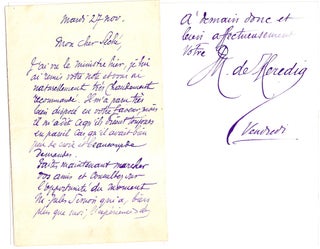 Mardi 27 nov.
Mon cher
J'ai vu le ministre hier, je lui
ai remis votre note et vous ai
naturellement très chaudement
recommandé. Il m'a paru très
bien disposé en votre faveur, mais
il m'a dit ce qu'ils disent toujours
en pareil cas qu'il avait bien
peu de croix et beaucoup de
demandes.
Faites maintenant marcher
vos amis et consultez sur
l'opportunité du moment
Mr Jules Simon qui a, bien
plus que moi, l'expérience de
à demain donc et
bien affectueusement
Votre
de Heredia
Vendredi.